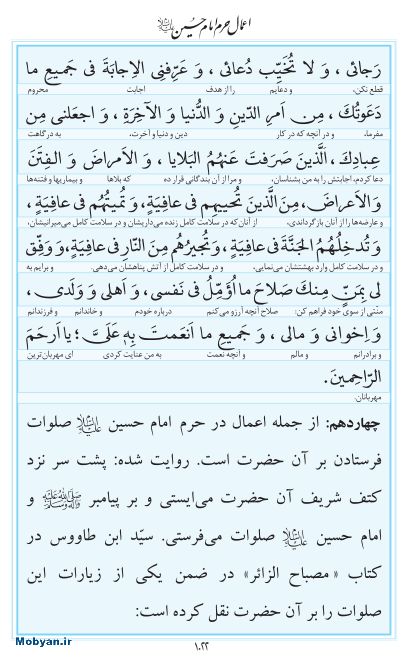 اعمال حرم امام حسین علیه السلام
رَجائی ، وَ لا تُخَیِّب دُعائی ، وَ عَرِّفنِی الاِجابَةَ فی جَمیعِ ما
قطع نکن، و دعایم را از هدف اجابت محروم
دَعَوتُکَ ، مِن اَمرِ الدّینِ وَ الدُّنیا وَ الآخِرَةِ ، وَ اجعَلنی مِن
مفرما، و در آنچه که در کار دین و دنیا و آخرت، به درگاهت
عِبادِکَ ، اَلَّذینَ صَرَفتَ عَنهُمُ البَلایا ، وَ الاَمراضَ وَ الفِتَنَ
دعا کردم، اجابتش را به من بشناسان، و مرا از آن بندگانی قرار ده که بلاها و بیماریها و فتنه‌ها
وَ الاَعراضَ، مِنَ الَّذینَ تُحییهِم فی عافِیَةٍ، وَ تُمیتُهُم فی عافِیَةٍ ،
و عارضه‌ها را از آنان بازگرداندی، از آنان که در سلامت کامل زنده می‌داریشان و در سلامت کامل می‌میرانیشان،
وَ تُدخِلُهُمُ الجَنَّةَ فی عافِیَةٍ، وَ تُجیرُهُم مِنَ النّارِ فی عافِیَةٍ، وَ وَفِّق
و در سلامت کامل وارد بهشتشان می‌نمایی، و در سلامت کامل از آتش پناهشان می‌دهی. و برایم به
لی بِمَنٍّ مِنکَ صَلاحَ ما اُؤَمِّلُ فی نَفسی، وَ اَهلی وَ وَلَدی ،
منتی از سوی خود فراهم کن: صلاح آنچه آرزو می‌کنم درباره خودم و خاندانم و فرزندانم
وَ اِخوانی وَ مالی ، وَ جَمیعِ ما اَنعَمتَ بِهِ عَلَیَّ ؛ یا اَرحَمَ
و برادرانم و مالم و آنچه نعمت به من عنایت کردی ای مهربان‌ترین
الرّاحِمینَ.
مهربانان.
چهاردهم: از جمله اعمال در حرم امام حسین علیه السلام صلوات
فرستادن بر آن حضرت است. روایت شده: پشت سر نزد
کتف شریف آن حضرت می‌ایستی و بر پیامبر صلی الله علیه وآله وسلم و
امام حسین علیه السلام صلوات می‌فرستی. سیّد ابن طاووس در
کتاب «مصباح الزائر» در ضمن یکی از زیارات این
صلوات را بر آن حضرت نقل کرده است:
۱۰۲۲
Mobyan.ir